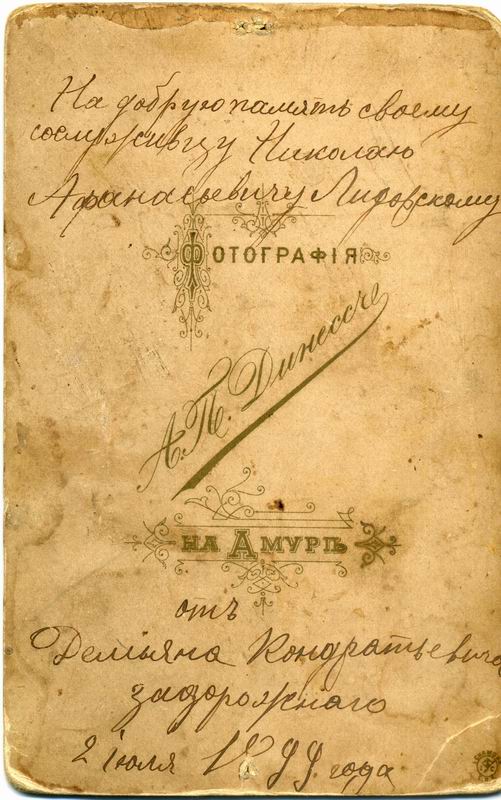 На добрую память своему
сослуживцу Николаю
Афанасьевичу Лидовскому
ФОТОГРАФІЯ
А. П. Динессъ
НА АМУРѢ
отъ
Демьяна Кондратьевича
задорожнаго
2 іюля 1899 года